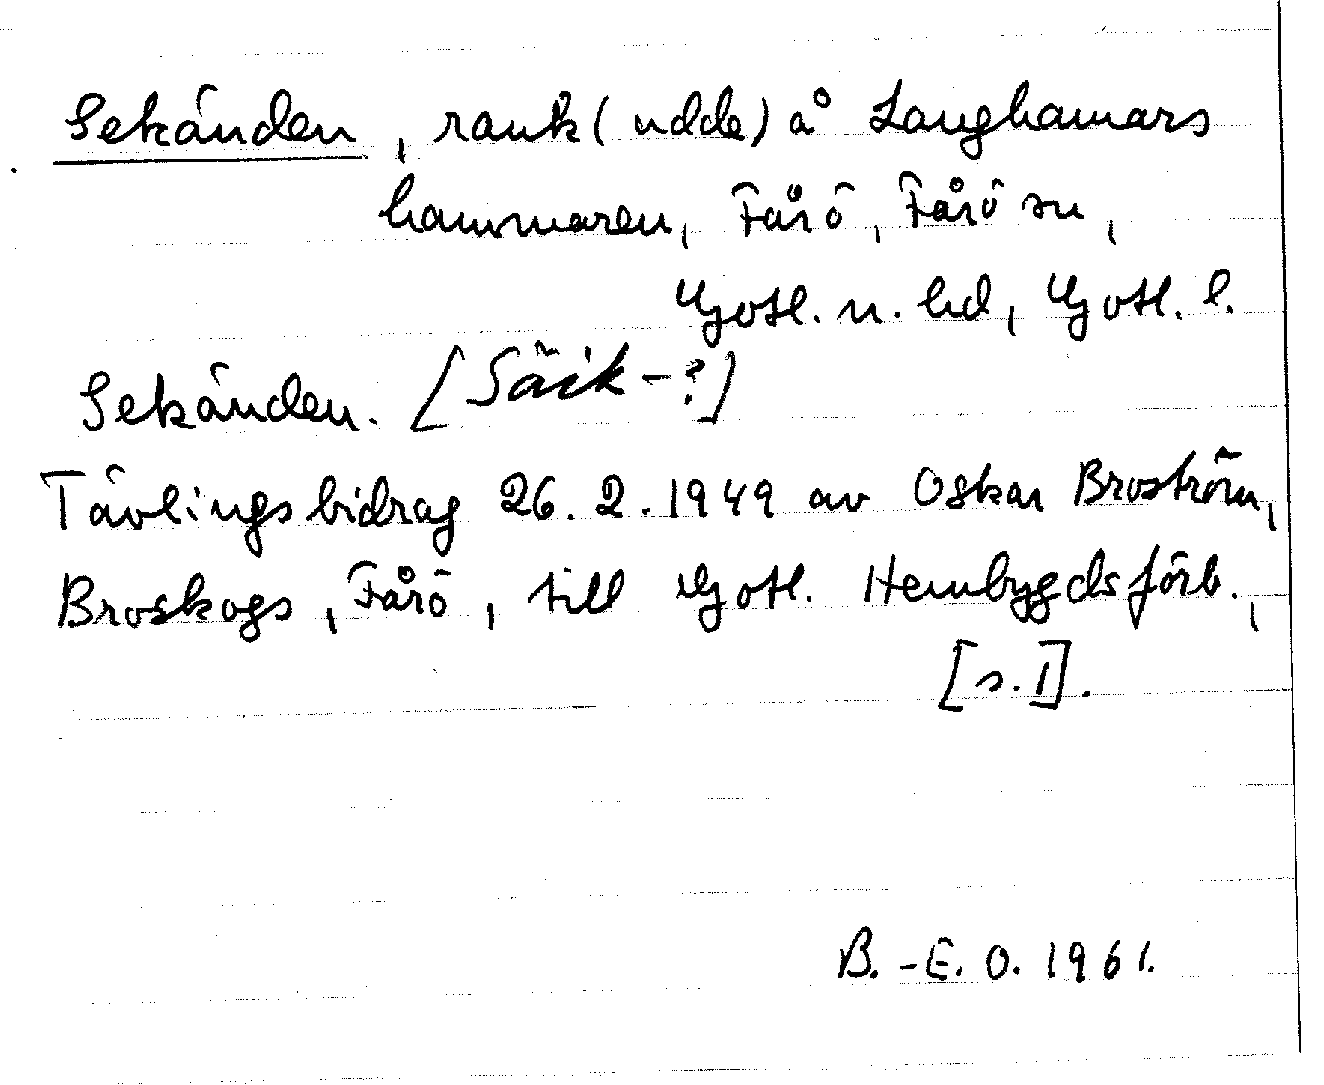 Sekänden, rauk (udde) å Langhamars
hammaren, Fårö, Fårö sn,
Gotl. n. hd, Gotl. l.
Sekänden. [Säik-?]
Tävlingsbidrag 26.2.1949 av Oskar Broström,
Broskogs, Fårö, till Gotl. Hembygdsförb.,
[s. 1].
B.-E. O. 1961.